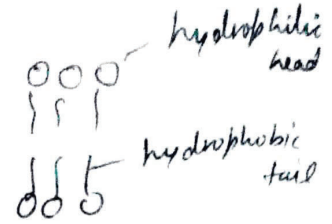 hydrophilic
head
hydrophobic
tail